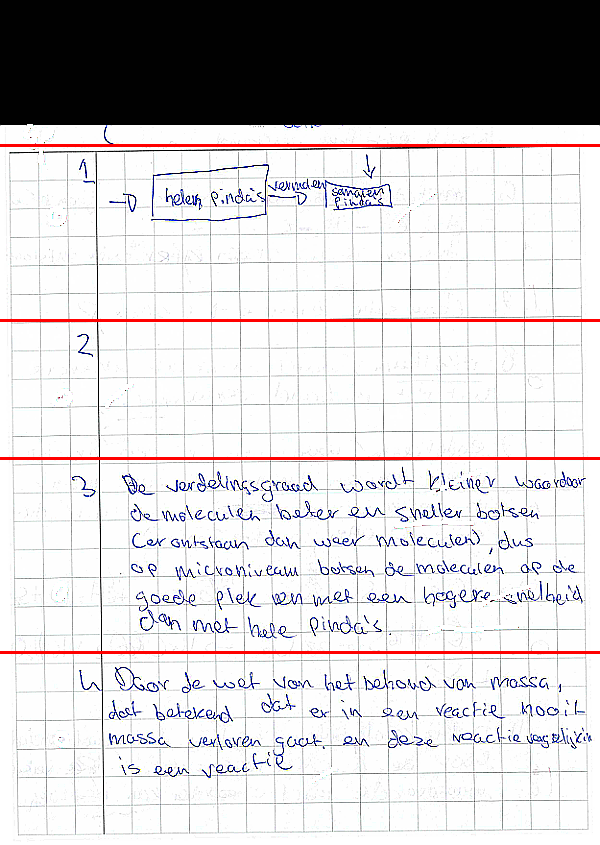 1
helen pinda's
vermalen
pinda's
2
3 De verdelingsgraad wordt kleiner waardoor
de moleculen beter en sneller botsen
(er ontstaan dan weer moleculen), dus
op microniveau botsen de moleculen op de
goede plek en met een hogere snelheid
dan met hele pinda's.
4 Door de wet van het behoud van massa,
dat betekend dat er in een reactie nooit
massa verloren gaat. en deze reactievergelijkin
is een reactie